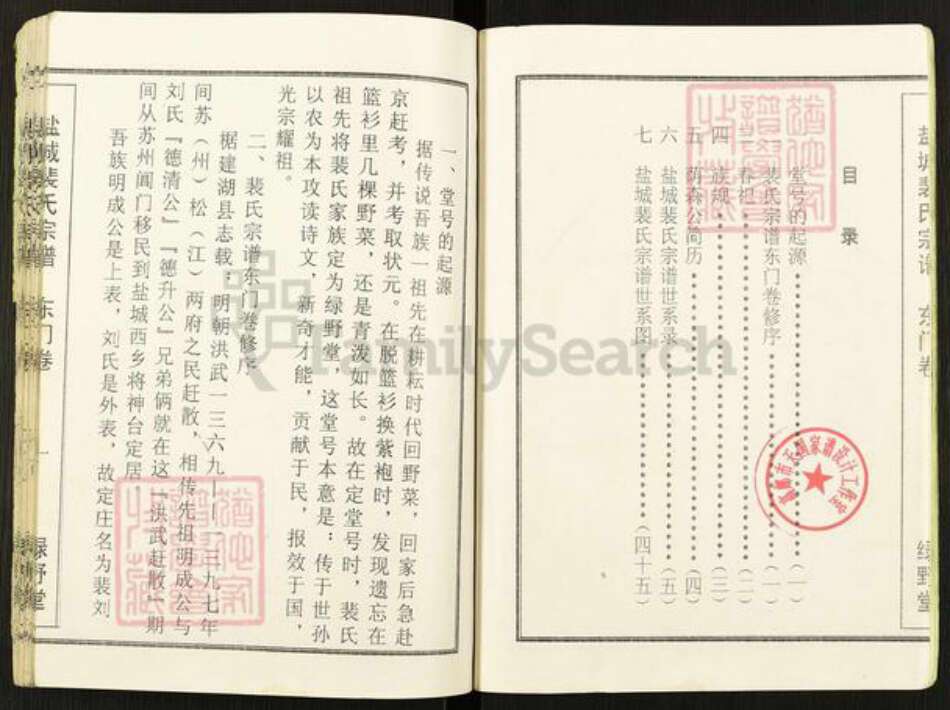 盐城裴氏宗谱 东门卷 绿野堂
目录
一 堂号的起源(一)
二 裴氏宗谱东门卷修序(一)
三 春祖(三)
四 族规(三)
五 荫森公简历(四)
六 盐城裴氏宗谱世系录(五)
七 盐城裴氏宗谱世系图(四十五)
一、堂号的起源
据传说吾族一祖先在耕耘时代回野菜,回家后急赴
京赶考,并考取状元。在脱篮衫换紫袍时,发现遗忘在
篮衫里几棵野菜,还是青泼如长。故在定堂号时,裴氏
祖先将裴氏家族定为绿野堂,这堂号本意是:传于世孙
以农为本攻读诗文,新奇才能,贡献于民,报效于国,
光宗耀祖。
二、裴氏宗谱东门卷修序
据建湖县志载:明朝洪武一三六九——一三九七年
间苏(州)松(江)两府之民赶散,相传先祖明成公与
刘氏『德清公』『德升公』兄弟俩就在这『洪武赶散』期
间从苏州阊门移民到盐城西乡将神台定居
吾族明成公是上表,刘氏是外表,故定庄名为裴刘
盐城裴氏宗谱 东门卷 一 绿野堂
FamilySearch